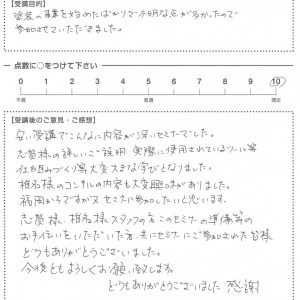 【受講目的】
塗装の事業を始めたばかりで不明な点が多かったので
参加させていただきました。
点数に○をつけて下さい
0 1 2 3 4 5 6 7 8 9 10
不満 普通 満足
【受講後のご意見・ご感想】
安い受講でこんなに内容が深いセミナーでした。
志賀様の詳しいご説明 実際に使用されているツール等
仕組みづくり等大変大きな学びとなりました。
椎名様のコンサルの内容も大変興味がありました。
福岡からですが又セミナーに参加したいと思います。
志賀様、椎名様 スタッフの方 このセミナーの準備等の
お手伝いをいただいた方、共にセミナーにご参加された皆様
どうもありがとうございました。
今後ともよろしくお願い致します。
どうもありがとうございました 感謝